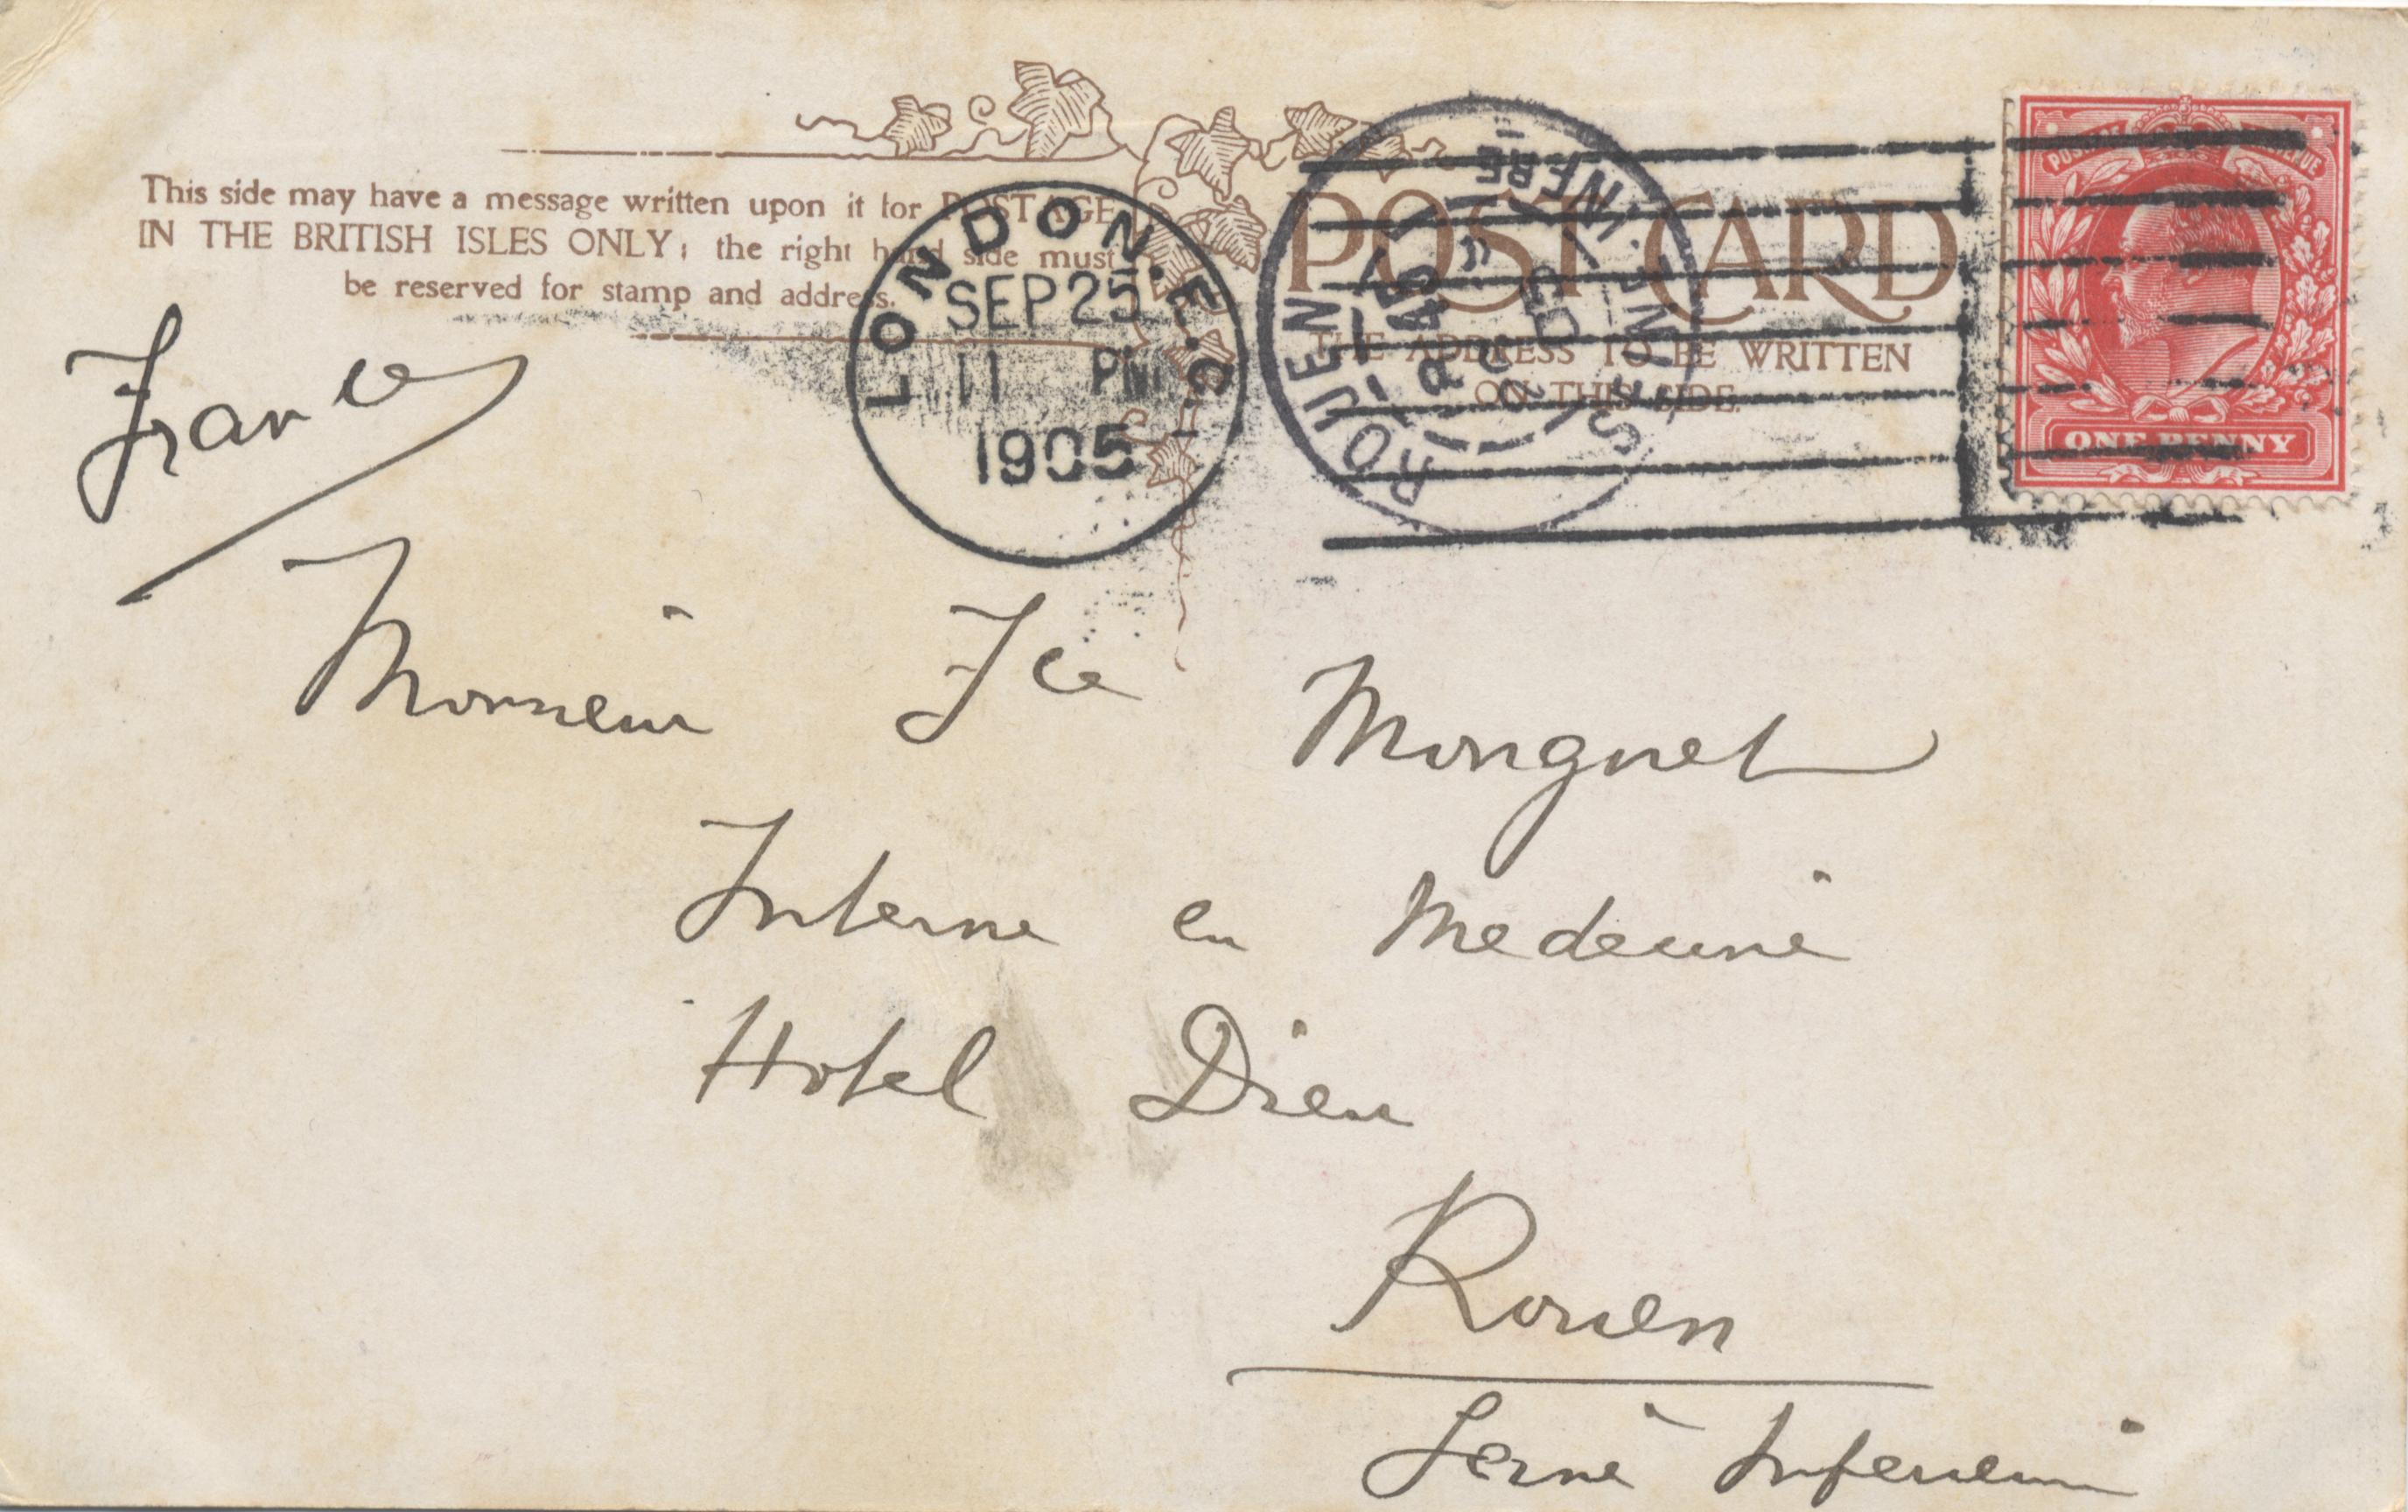 This side may have a message written upon it for POSTAGE
IN THE BRITISH ISLES ONLY; the right hand side must
be reserved for stamp and address.
POST CARD
THE ADDRESS TO BE WRITTEN
ON THIS SIDE
LONDON. E.C.
SEP 25
11 PM
1905
ROUEN
SEINE INFRE
POSTAGE REVENUE
ONE PENNY
France
Monsieur
Monguet
Interne en Medecine
Hotel Dieu
Rouen
Seine Inferieure